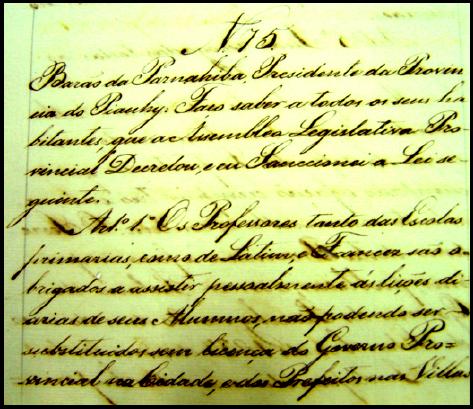 N. 75.
Barão da Parnahiba, Presidente da Provin
cia do Piauhy: Faço saber a todos os seus ha
bitantes, que a Assemblea Legislativa Pro
vincial Decretou, e eu Sanccionei a Lei se
guinte.
Art.º 1.º Os Professores tanto das Escolas
primarias, como de Latim, e Francez são o
brigados a assistir pessoalmente ás lições di
arias de seus Alumnos, não podendo ser
substituidos sem licença do Governo Pro=
vincial na Cidade, e dos Prefeitos nas Villas